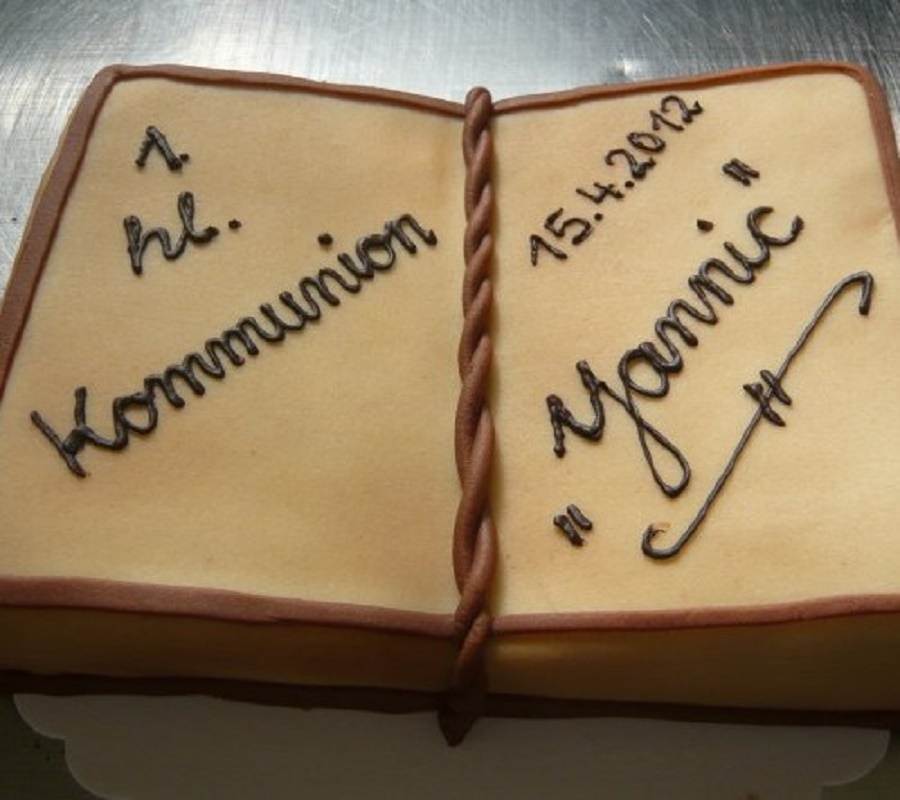 1.
hl.
Kommunion
15.4.2012
"Yannic"